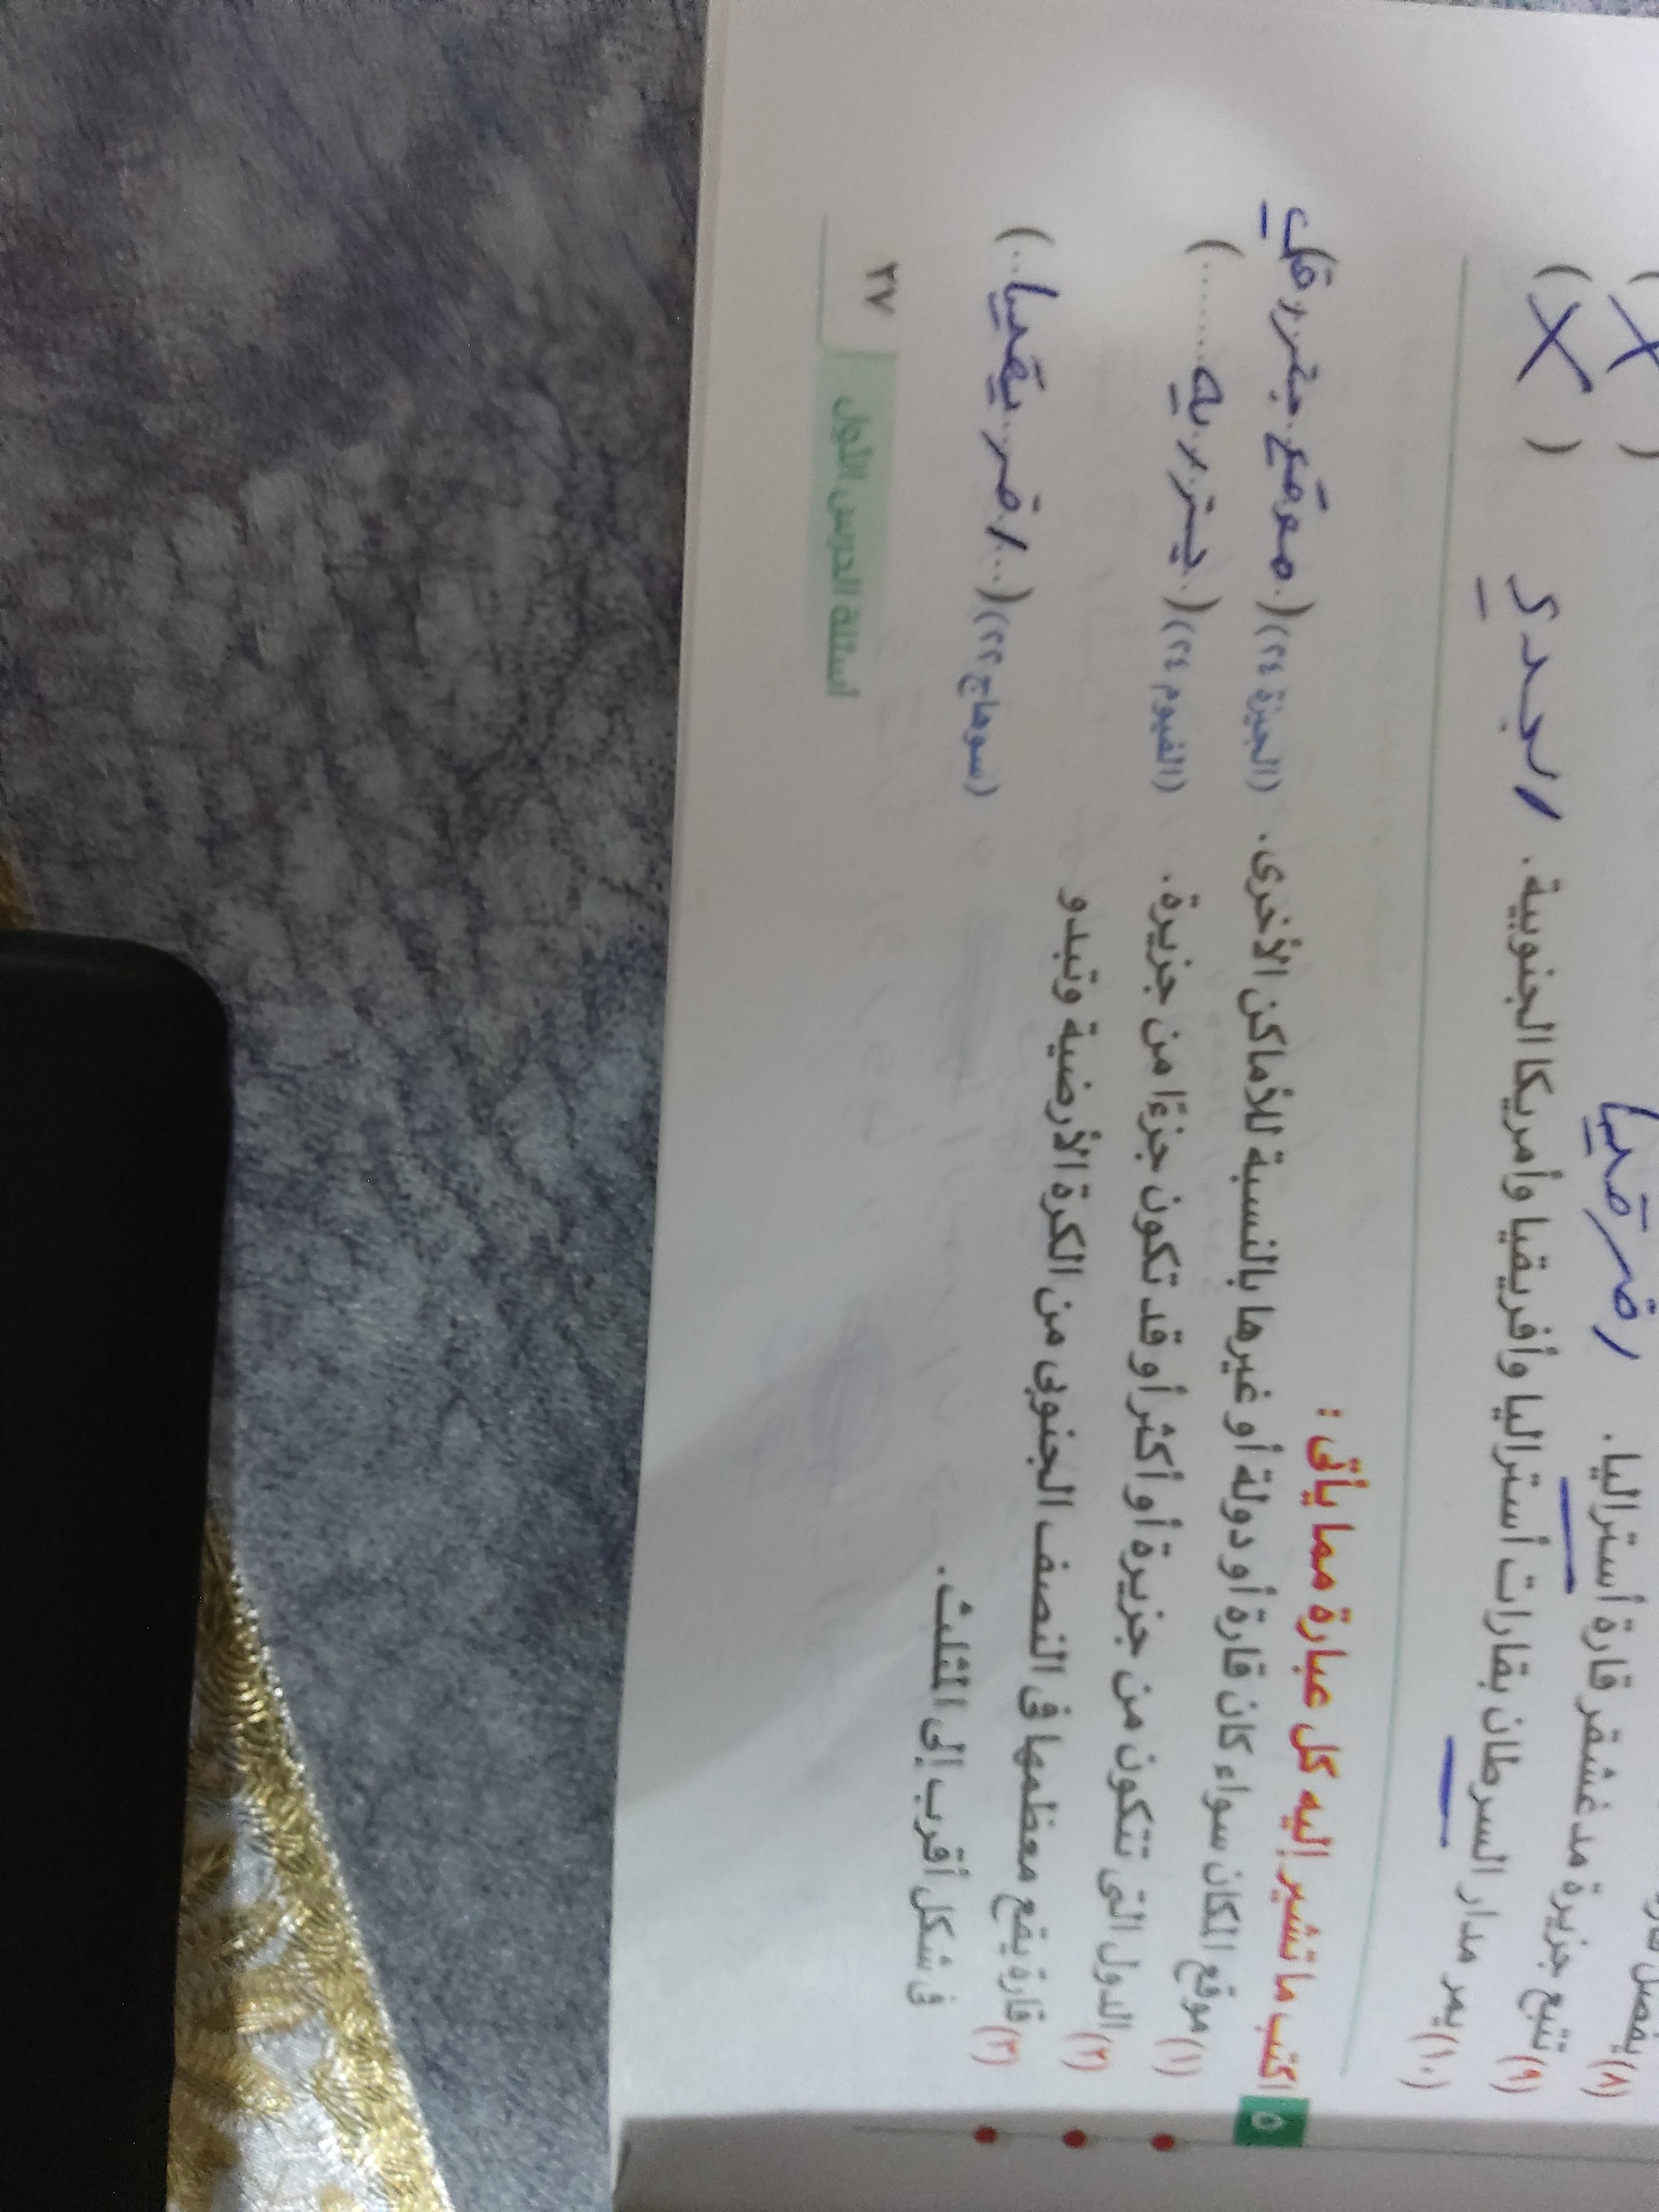 (٨) يفصل
( X )
(٩) تتبع جزيرة مدغشقر قارة أستراليا. ( X )
(١٠) يمر مدار السرطان بقارات أستراليا وأفريقيا وأمريكا الجنوبية. الجدي
٥ اكتب ما تشير إليه كل عبارة مما يأتى :
(١) موقع المكان سواء كان قارة أو دولة أو غيرها بالنسبة للأماكن الأخرى. (الجيزة ٢٤) (موقع
(٢) الدول التى تتكون من جزيرة أو أكثر أو قد تكون جزءًا من جزيرة. (الفيوم ٢٤) (
(٣) قارة يقع معظمها فى النصف الجنوبى من الكرة الأرضية وتبدو
فى شكل أقرب إلى المثلث. (سوهاج ٢٢) (افريقيا)
أسئلة الدرس الأول ٢٧